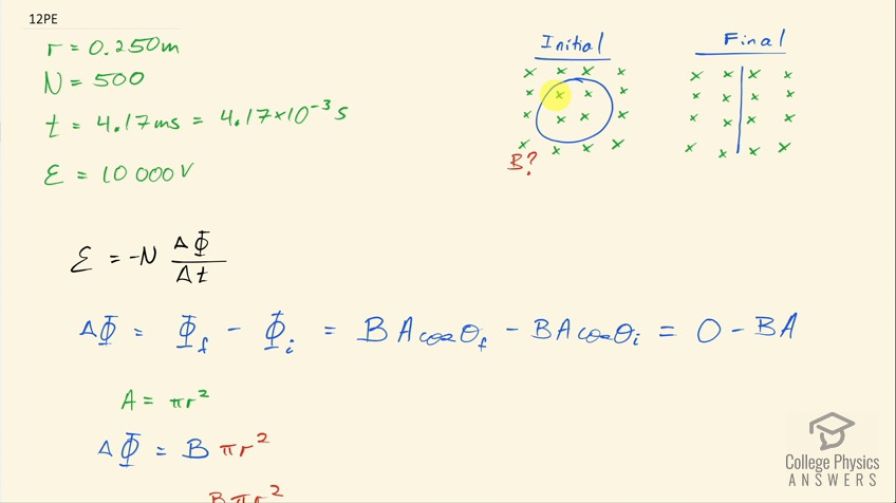 12PE
r = 0.250m
N = 500
t = 4.17ms = 4.17×10⁻³s
ε = 10 000V
Initial
Final
B?
ε = -N ΔΦ/Δt
ΔΦ = Φf - Φi = BAcosθf - BAcosθi = 0 - BA
A = πr²
ΔΦ = Bπr²
Bπr²
College Physics
ANSWERS